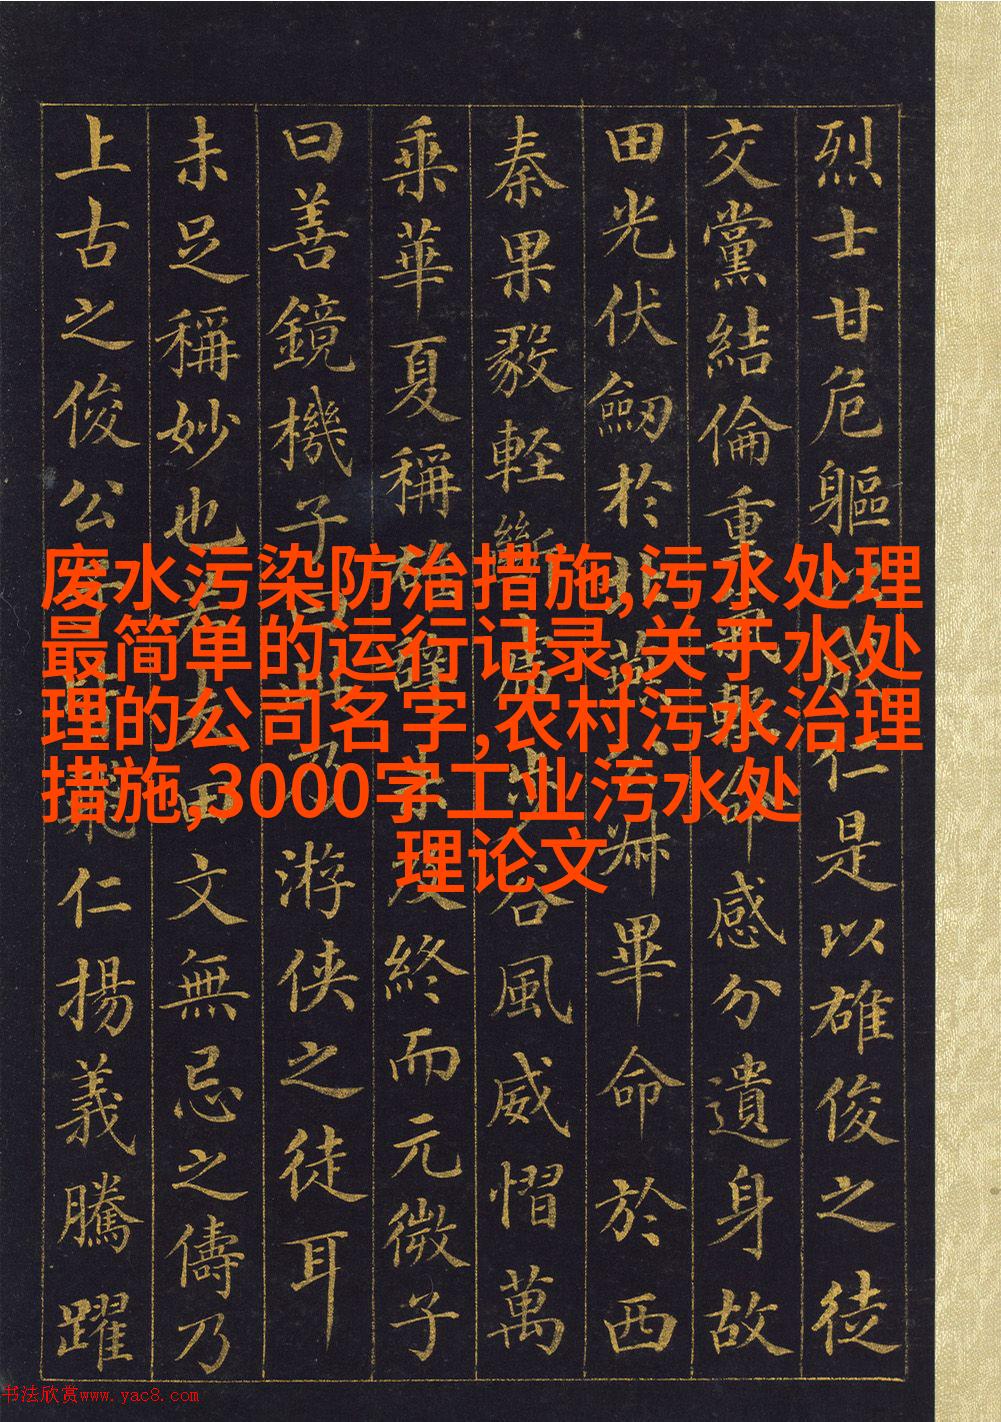 烈士甘危軀成仁是以雄俊之徒
交黨結倫重氣輕命感分遺身故
田光伏劒於北燕公叔畢命於西
秦果毅輕斷虎步谷風威慴萬
乘華夏稱雄辭未及終而元微子
曰善鏡機子曰此乃游俠之徒耳
未足稱妙也若夫田文無忌之儔乃
上古之俊公子也皆飛仁揚義騰躍
废水污染防治措施,污水处理
最简单的运行记录,关于水处
理的公司名字,农村污水治理
措施,3000字工业污水处
理论文
书法欣赏www.yac8.com